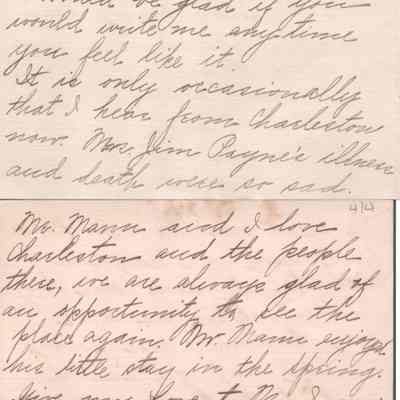 would be glad if you
would write me anytime
you feel like it.
It is only occasionally
that I hear from Charleston
now. Mrs. Jim Payne's illness
and death were so sad.
4/4
Mr. Mann and I love
Charleston and the people
there, we are always glad of
an opportunity to see the
place again. Mr. Mann enjoyed
his little stay in the Spring.
Give my love to